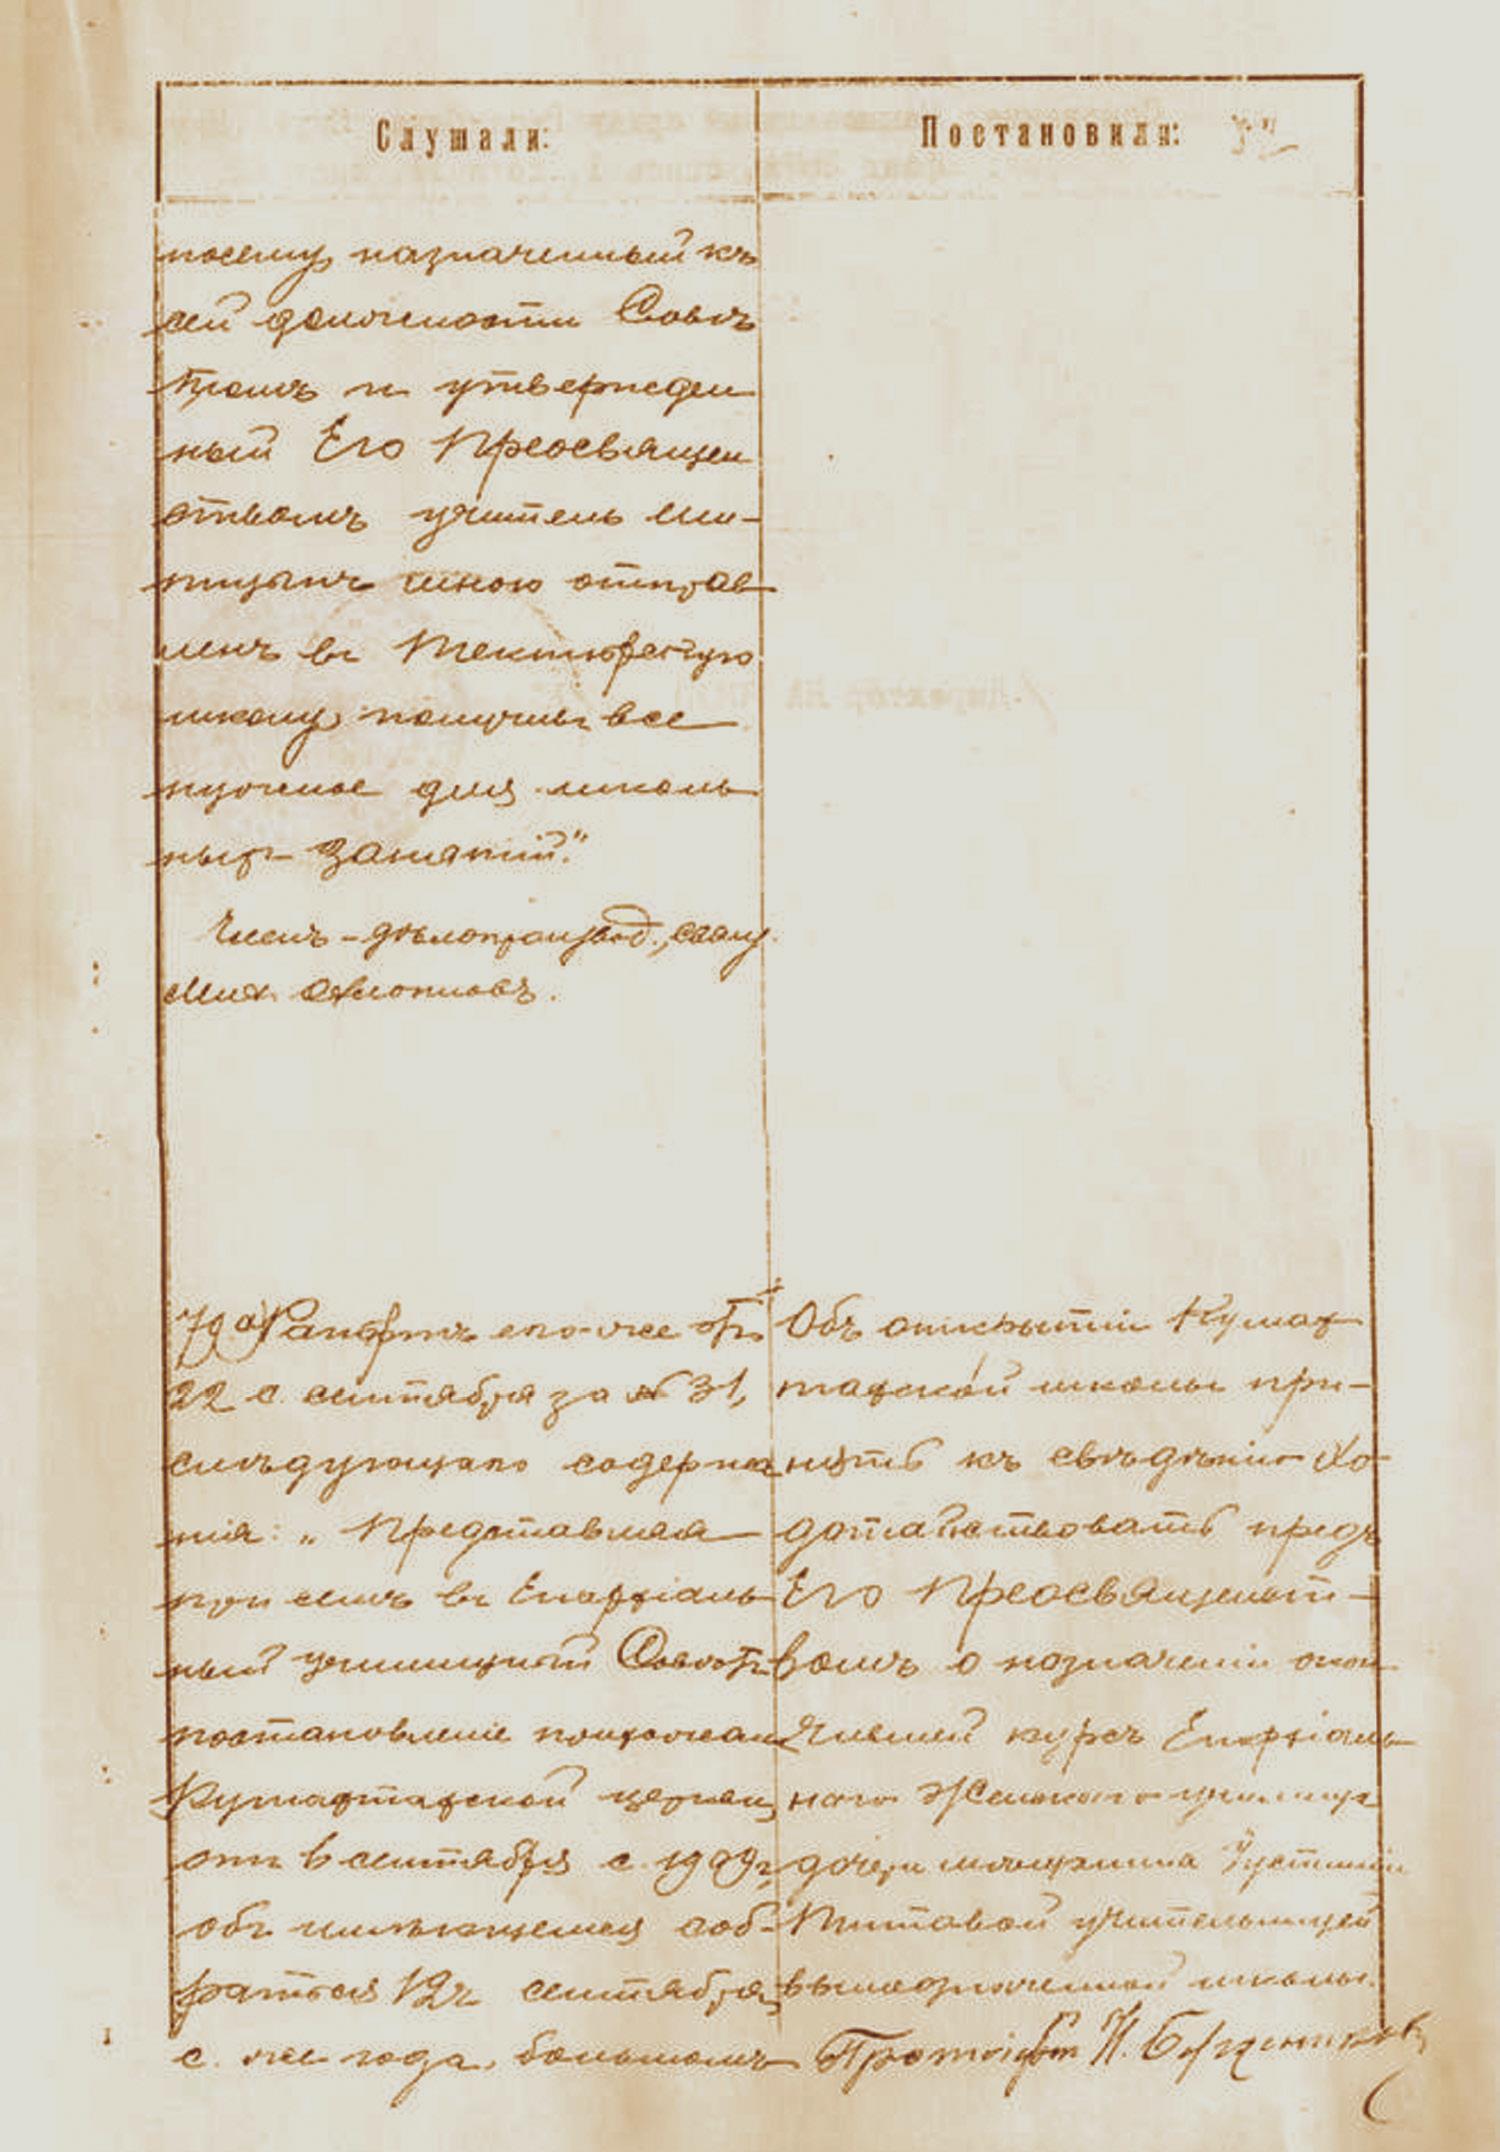 Слушали:
Постановили:
посему назначенный къ
сей должности Совѣ
томъ и утвержден
ный Его Преосвящен
ствомъ учитель Ми-
пицынъ мною отправ
ленъ въ школу получивъ все
нужное для школь
ныхъ занятій."
Членъ-дѣлопроизвод., свящ.
Мих.
79 а) Рапортъ его-же отъ
22 с. сентября за № 31,
слѣдующаго содержа
нія: „Представляя
при семъ въ Епархіаль
ный училищный Совѣтъ
постановленіе прихожан
Кумахтахской церкви,
отъ 6 сентября с. 1909 г.,
объ имѣющемся соб-
раться 12 ч. сентября,
с. же года, большомъ
Объ открытіи Кумах
тахской школы при-
нять къ свѣдѣнію Хо-
датайствовать предъ
Его Преосвященст-
вомъ о назначеніи окон
чившей курсъ Епархіаль
наго Женскаго училища
дочери мѣщанина Іустиніи
Титовой учительницей
вышеозначенной школы.
Протоіерей Н.